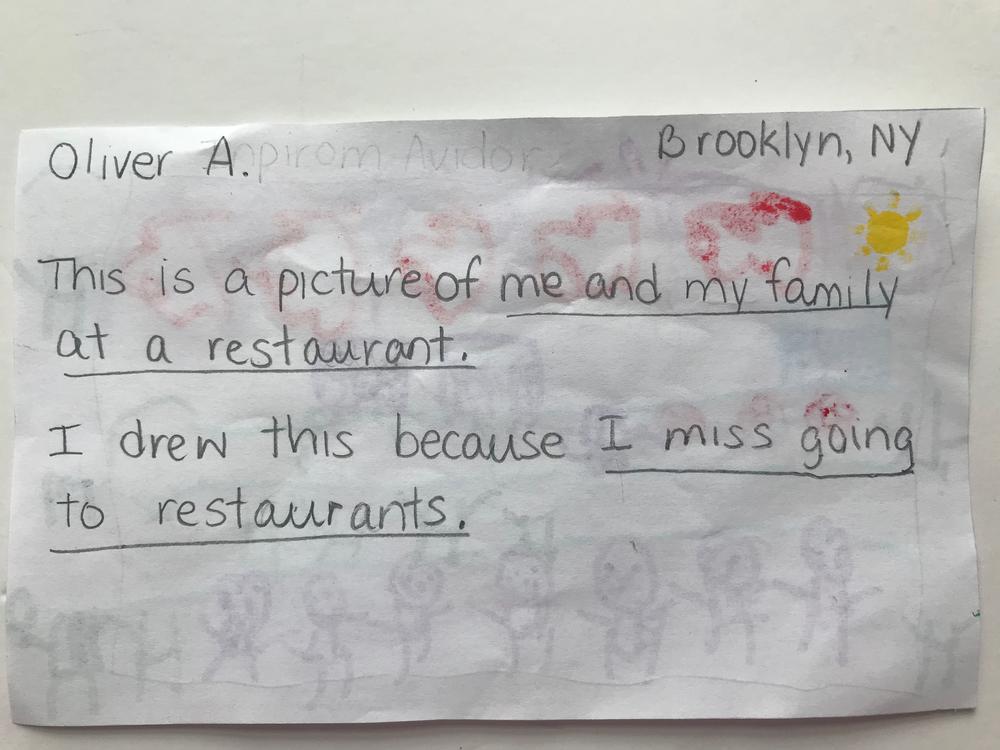 Oliver A. Brooklyn, NY
This is a picture of me and my family
at a restaurant.
I drew this because I miss going
to restaurants.